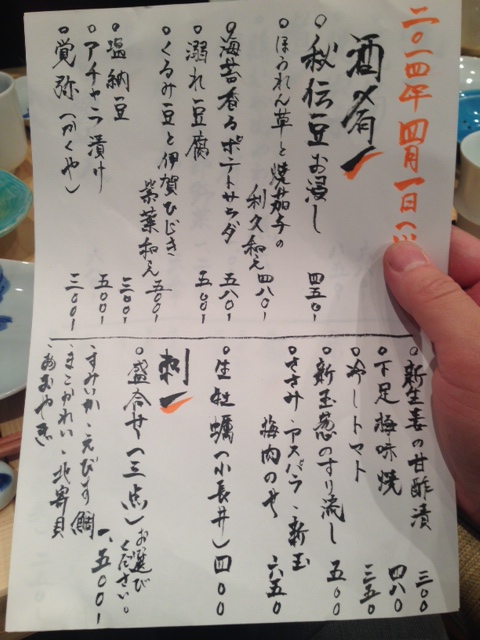 二〇一四年 四月一日(火
酒肴
秘伝豆お浸し 四五〇、
ほうれん草と焼茄子の
利久和え 四八〇、
海苔香るポテトサラダ 五八〇、
溺れ豆腐 五〇〇、
くるみ豆と伊賀ひじき
紫葉和え 五〇〇、
塩納豆 三〇〇、
アチャラ漬け 五〇〇、
覚弥(かくや) 三〇〇、
新生姜の甘酢漬 三〇〇
下足梅味焼 四八〇
冷しトマト 三五〇
新玉葱のすり流し 五〇〇
ささみ・アスパラ・新玉
梅肉のせ 六五〇
生牡蠣(小長井) 四〇〇
刺
盛合せ(三点)お選びください。 一、五〇〇、
すみいか・えびす鯛
まこがれい・北寄貝
あおやぎ